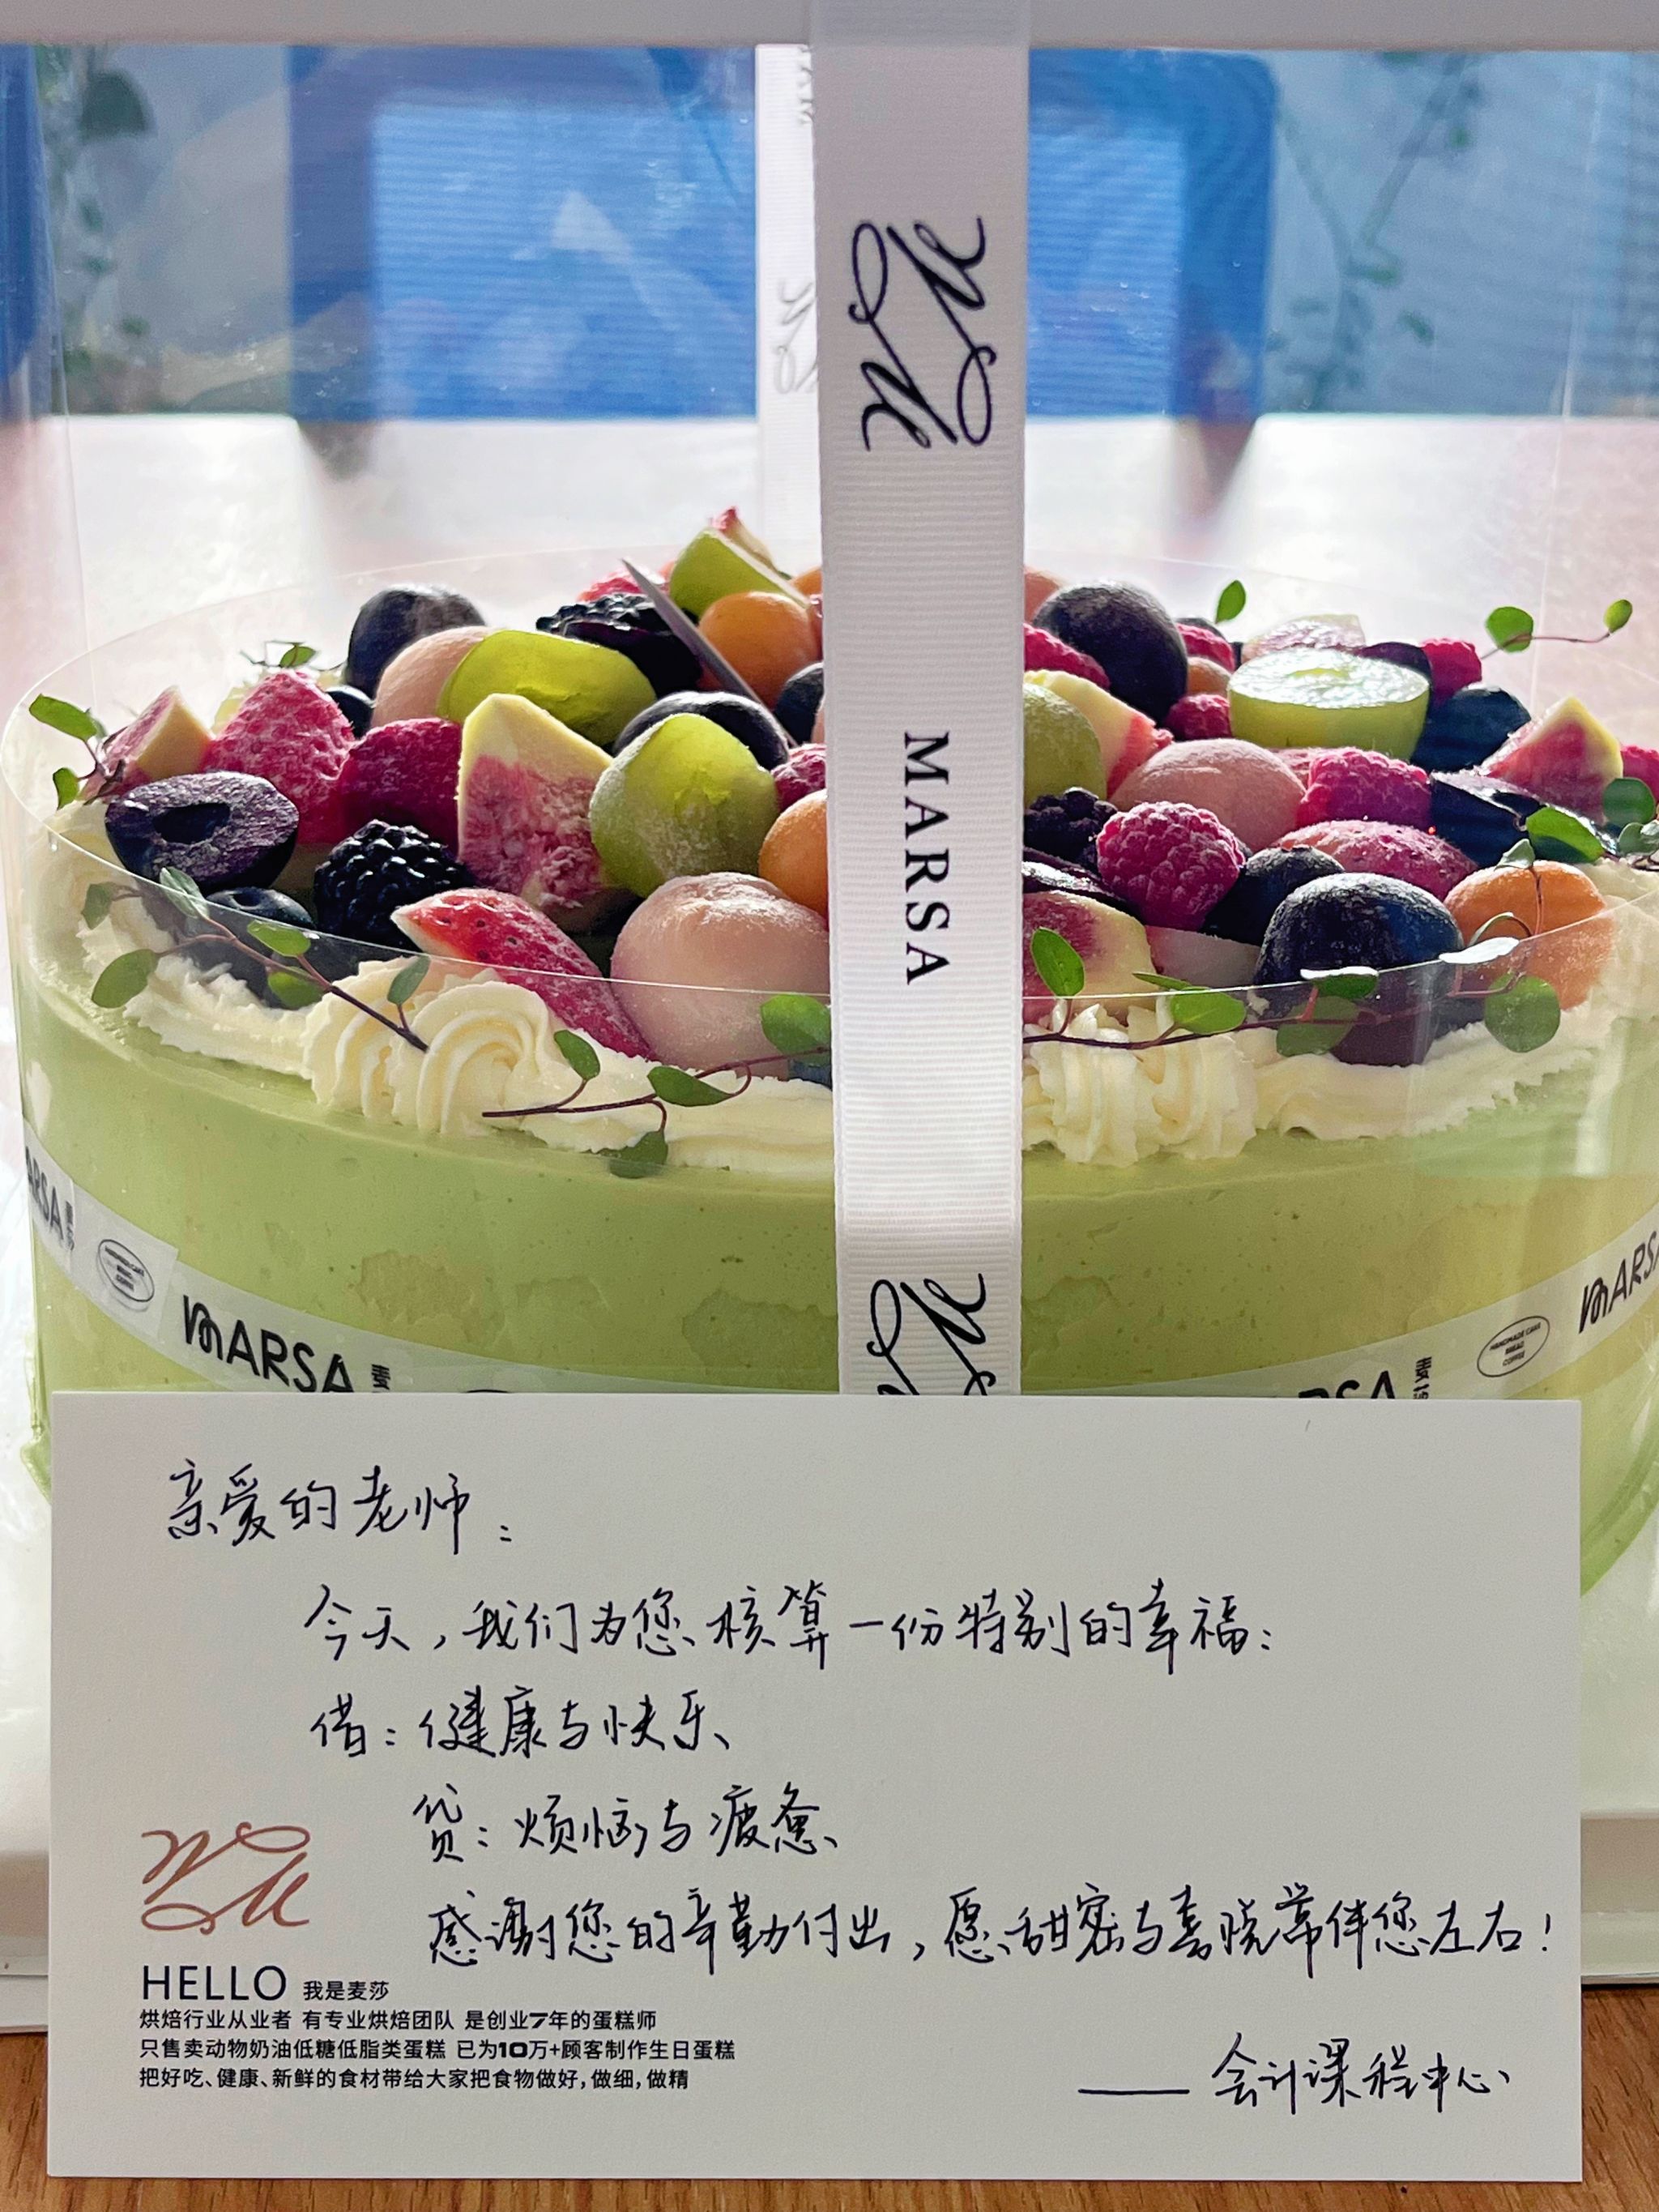 MARSA
MARSA
HANDMADE CAKE
BREAD
COFFEE
MARSA
亲爱的老师：
今天，我们为您核算一份特别的幸福：
借：健康与快乐
贷：烦恼与疲惫
感谢您的辛勤付出，愿甜蜜与喜悦常伴您左右！
HELLO 我是麦莎
烘焙行业从业者 有专业烘焙团队 是创业7年的蛋糕师
只售卖动物奶油低糖低脂类蛋糕 已为10万+顾客制作生日蛋糕
把好吃、健康、新鲜的食材带给大家把食物做好，做细，做精
——会计课程中心